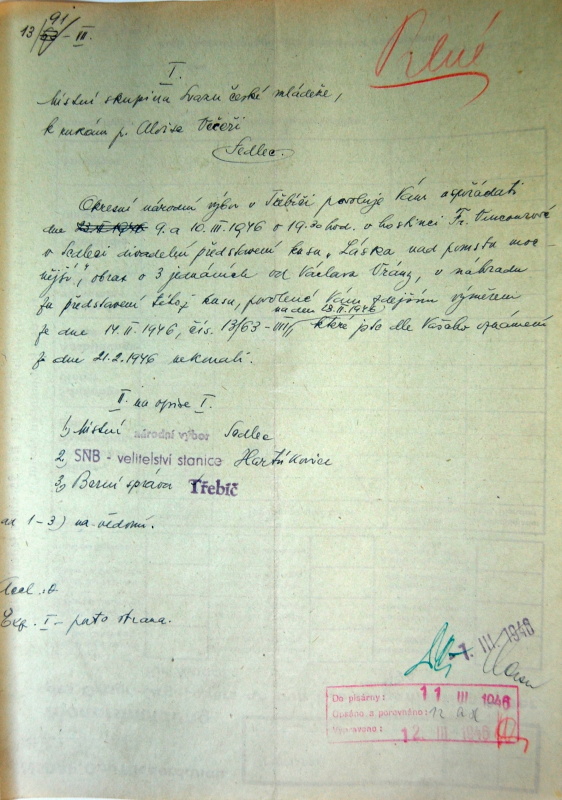 13/91 - III.
Pilné
I.
Místní skupina Svazu české mládeže,
k rukám p. Aloise Večeři
Sedlec.
Okresní národní výbor v Třebíči povoluje Vám uspořádati
dne 9. a 10. III. 1946 o 19.30 hod. v hostinci Fr.
v Sedleci divadelní představení kusu „Láska nad pomstu moc-
nější", obraz o 3 jednáních od Václava Vrány, v náhradu
za představení téhož kusu, povolené Vám zdejším výměrem
na den 23. II. 1946
ze dne 14. II. 1946, čís. 13/63-III, které jste dle Vašeho oznámení
ze dne 21. 2. 1946 nekonali.
II. na opise I.
1) Místní národní výbor Sedlec
2) SNB - velitelství stanice Hartvíkovice
3) Berní správa Třebíč
ad 1-3) na vědomí.
Exp. I - tato strana.
-7. III. 1946
Do písárny: 11 III 1946
Opsáno a porovnáno:
Vypraveno: 12. III 1946